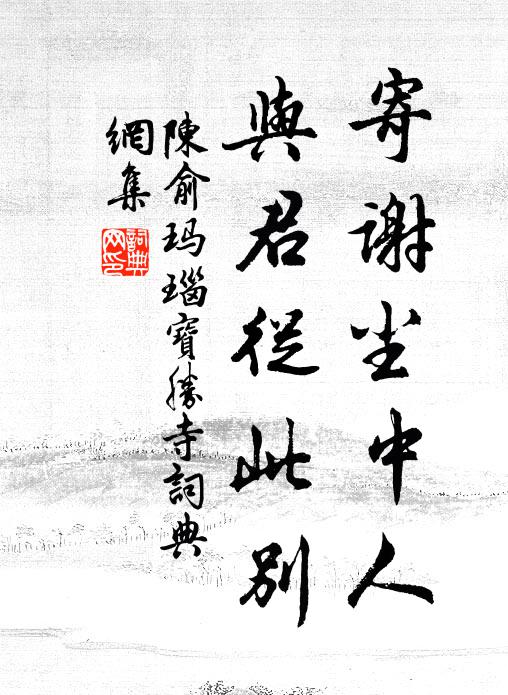 寄谢尘中人
與君從此别
陳俞玛瑙寶勝寺詞典
網集
詞典
网印